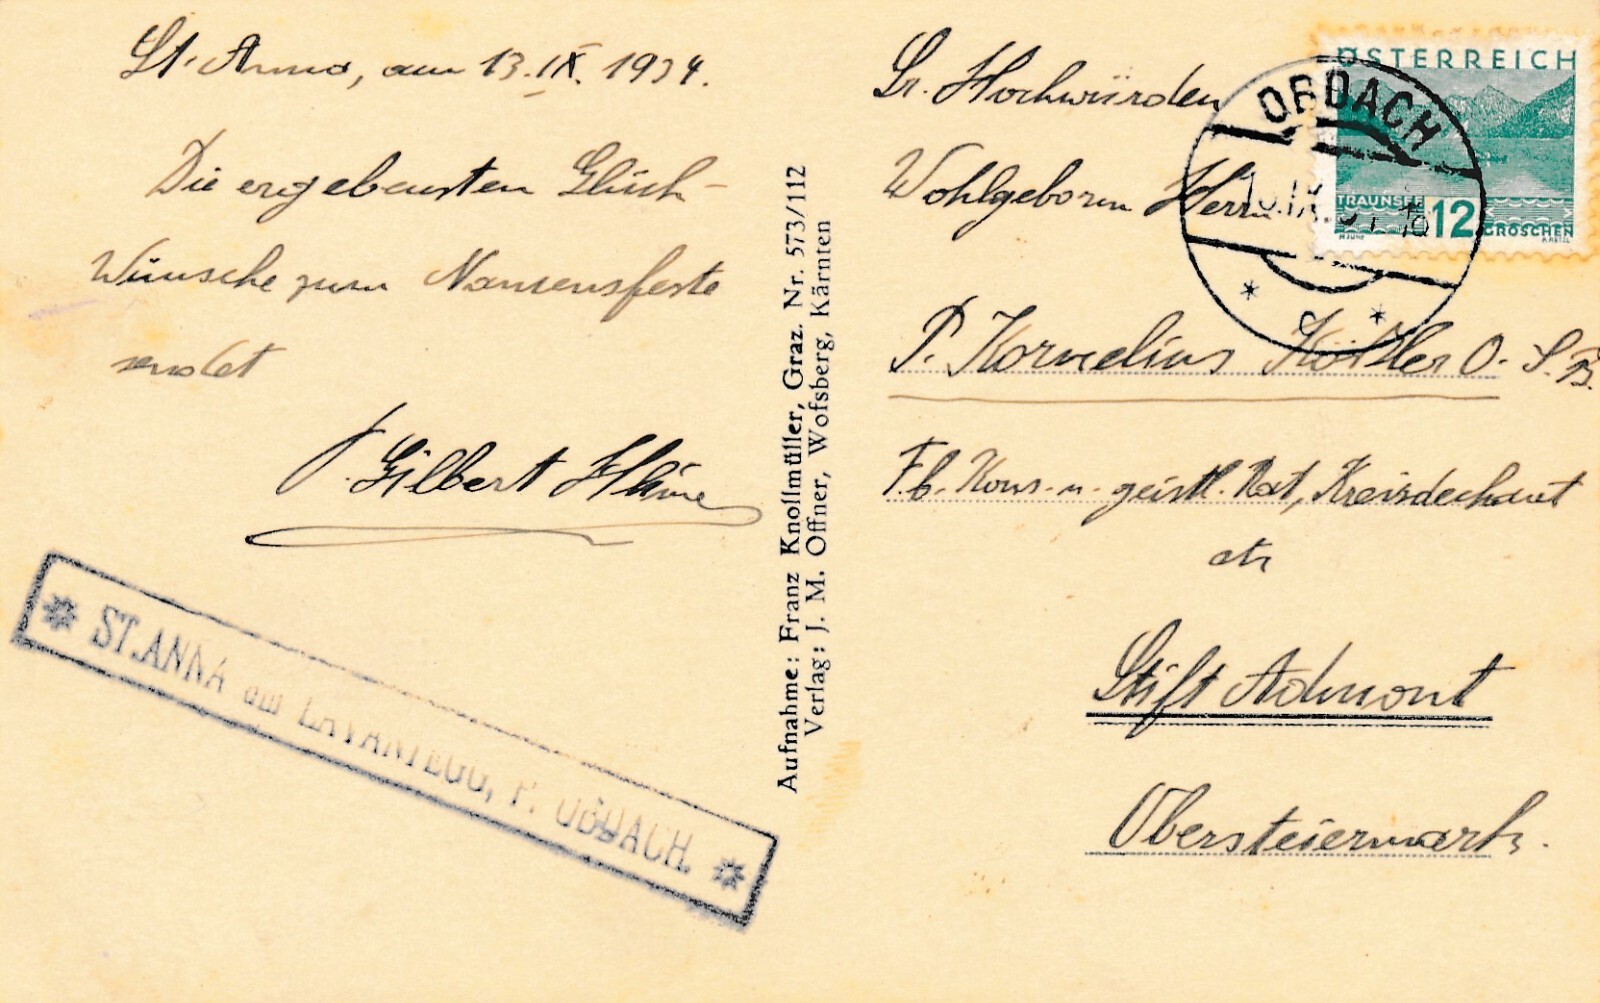 St. Anna, am 13.IX. 1934.
Die ergebensten Glück-
Wünsche zum Namensfeste
sendet
P. Gilbert
* ST.ANNA am LAVANTEGG, P. OBDACH. *
Aufnahme: Franz Knollmüller, Graz. Nr. 573/112
Verlag: J. M. Offner, Wofsberg, Kärnten
ÖSTERREICH
TRAUNSEE
12
GROSCHEN
OBDACH
Sr. Hochwürden
Wohlgeboren Herrn
P. Kornelius O. S. B.
F.b. Kons. u. geistl. Rat, Kreisdechant
etc
Stift Admont
Obersteiermark.